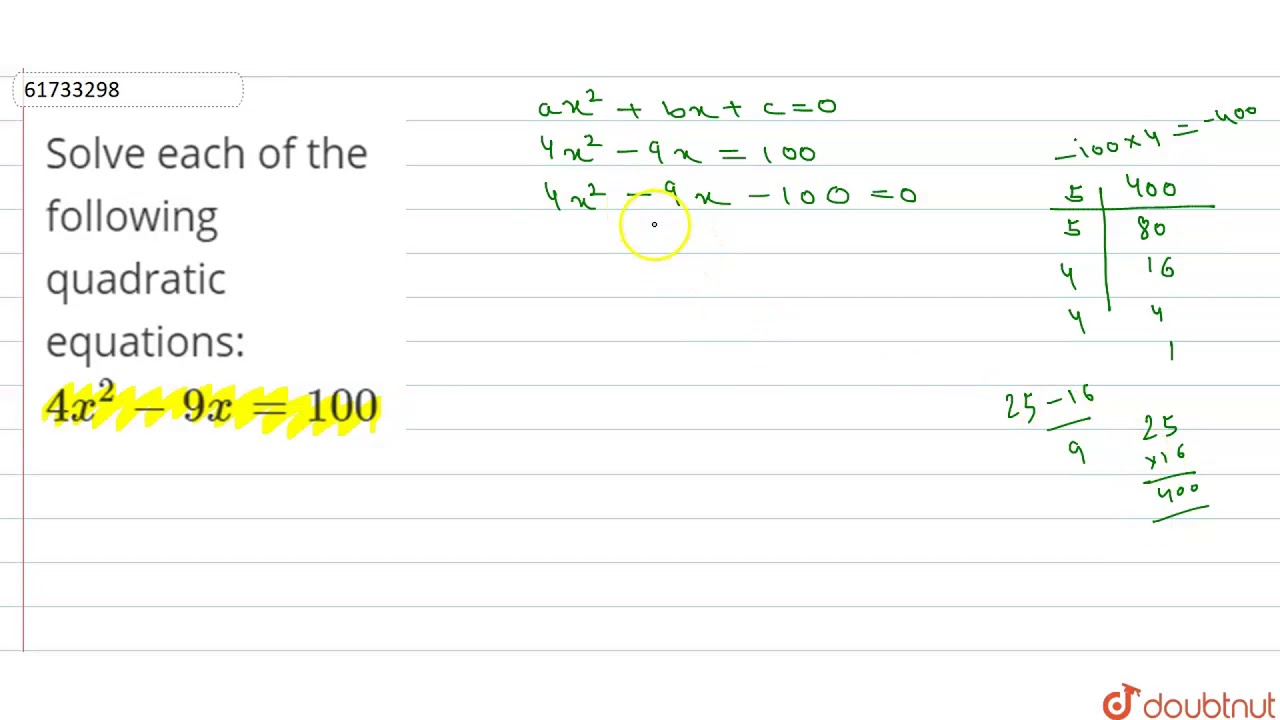 61733298
Solve each of the
following
quadratic
equations:
4x² − 9x = 100
ax² + bx + c = 0
4x² − 9x = 100
4x² − 9x − 100 = 0
−100 × 4 = −400
5 | 400
5 | 80
4 | 16
4 | 4
1
25 − 16
9
25
×16
400
doubtnut